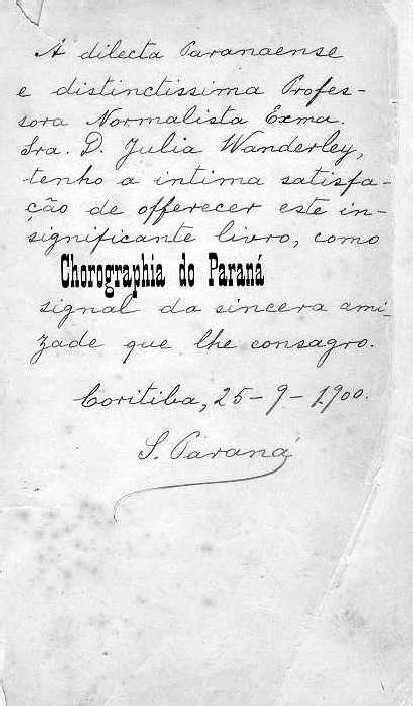 Á dilecta Paranaense
e distinctissima Profes-
sora Normalista Exma.
Sra. D. Julia Wanderley,
tenho a intima satisfa-
ção de offerecer este in-
significante livro, como
Chorographia do Paraná
signal da sincera ami-
zade que lhe consagro.
Coritiba, 25-9-1900.
S. Paraná